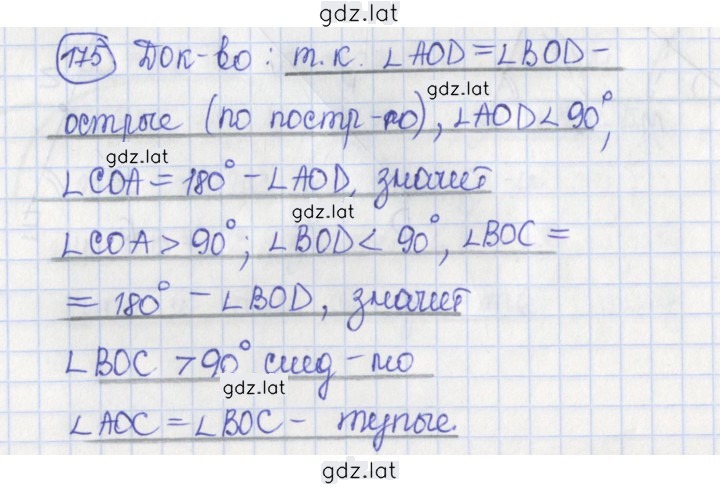 gdz.lat
175 Док-во: т.к. ∠AOD = ∠BOD –
gdz.lat
острые (по постр-ю), ∠AOD < 90°,
gdz.lat
∠COA = 180° – ∠AOD, значит
gdz.lat
∠COA > 90°; ∠BOD < 90°, ∠BOC =
= 180° – ∠BOD, значит
∠BOC > 90° след-но
gdz.lat
∠AOC = ∠BOC – тупые.
gdz.lat